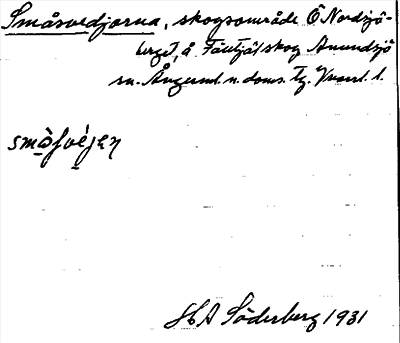 Småsvedjorna, skogsområde Ö Nordsjö-
berget, å Täutjäl skog Anundsjö
sn. Ångerml. n. doms. tg. Vnorrl. l.
småſvéjen
H A Söderberg 1931